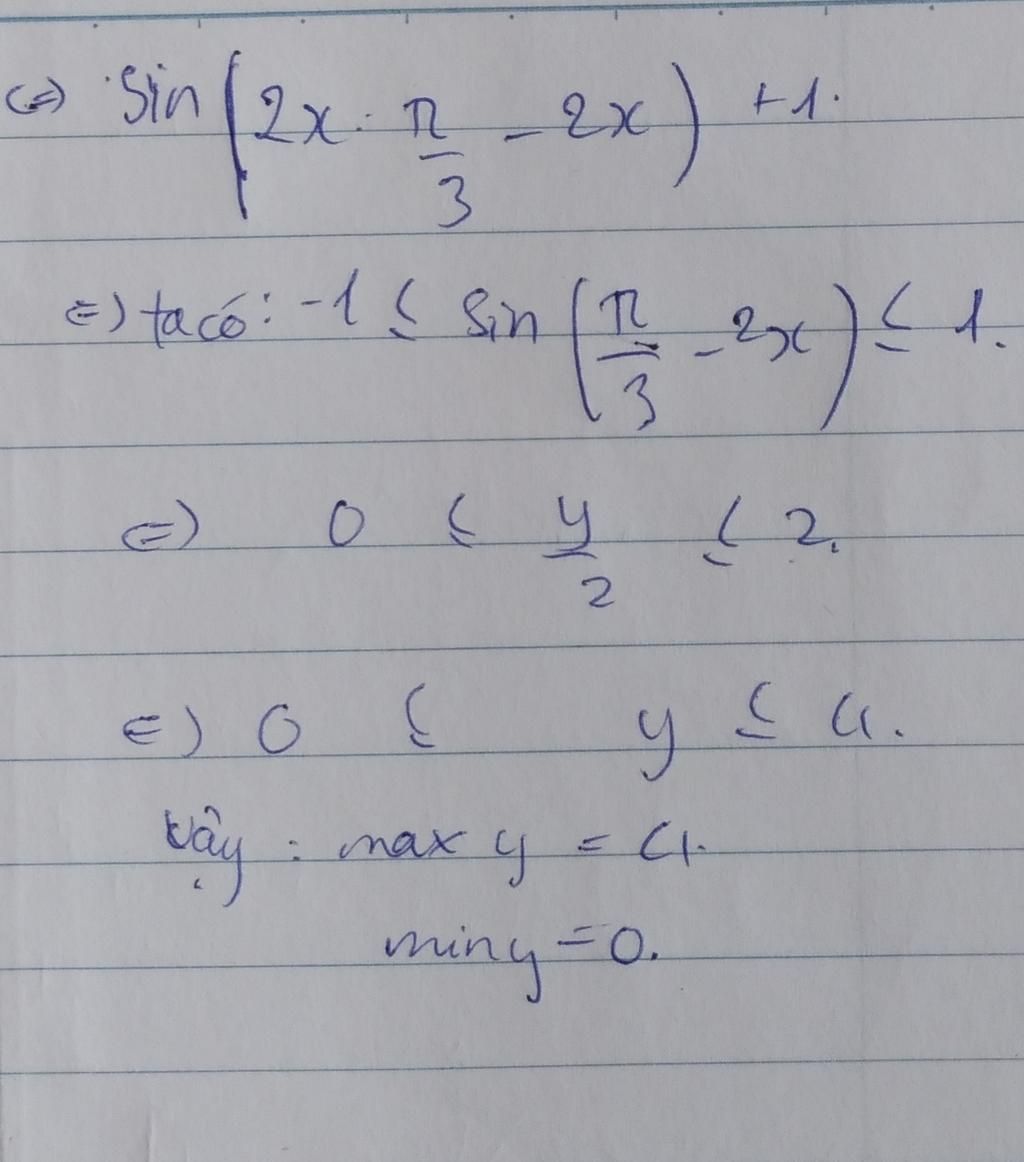 <=> Sin (2x · π/3 - 2x) +1.
=) ta có: -1 ≤ Sin (π/3 - 2x) ≤ 1.
=) 0 ≤ y/2 ≤ 2.
=) 0 ≤ y ≤ 4.
Vậy: max y = 4.
min y = 0.